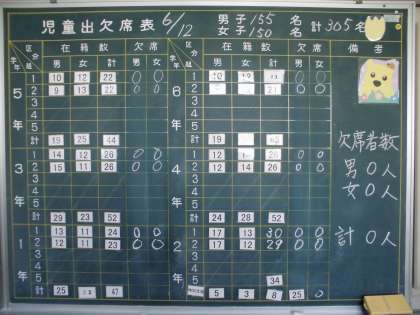 児童出欠席表 6/12 男子155名 計305名
女子150名
区分 在籍数 欠席 区分 在籍数 欠席 備考
組 男 女 計 男 女 組 男 女 計 男 女
5年 1 10 12 22 0 0 6年 1 10 0 0
2 9 13 22 0 0 2 9 21 0 0
3 3
4 4
5 5
計 19 25 44 計 19
3年 1 14 12 26 0 0 4年 1 12 14 26 0 0
2 15 11 26 0 0 2 12 14 26 0 0
3 3
4 4
5 5
計 29 23 52 計 24 28 52
1年 1 13 11 24 0 0 2年 1 17 13 30 0 0
2 12 11 23 0 0 2 17 12 29 0 0
3 3
4 4
5 5 34
計 25 47 5 3 8 25 0
欠席者数
男 0人
女 0人
計 0人